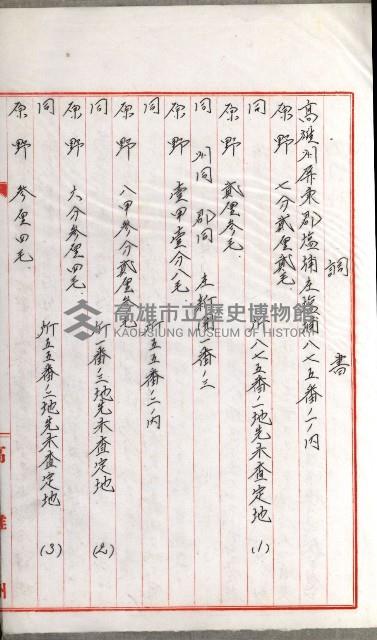 調書
高雄州屏東郡塩埔庄塩埔八七五番ノ一ノ內
原野 七分貳厘貳毛
同 所八七五番ノ一地先未査定地 (1)
原野 貳厘參毛
同州同郡同庄新圍一番ノ三
原野 壹甲壹分八毛
同 五五番ノ二ノ內
原野 八甲參分貳厘參毛
同 所一番ノ三地先未査定地 (2)
原野 六分參厘四毛
同 所五五番ノ二地先未査定地 (3)
原野 參厘四毛
高雄州
高雄市立歷史博物館
KAOHSIUNG MUSEUM OF HISTORY